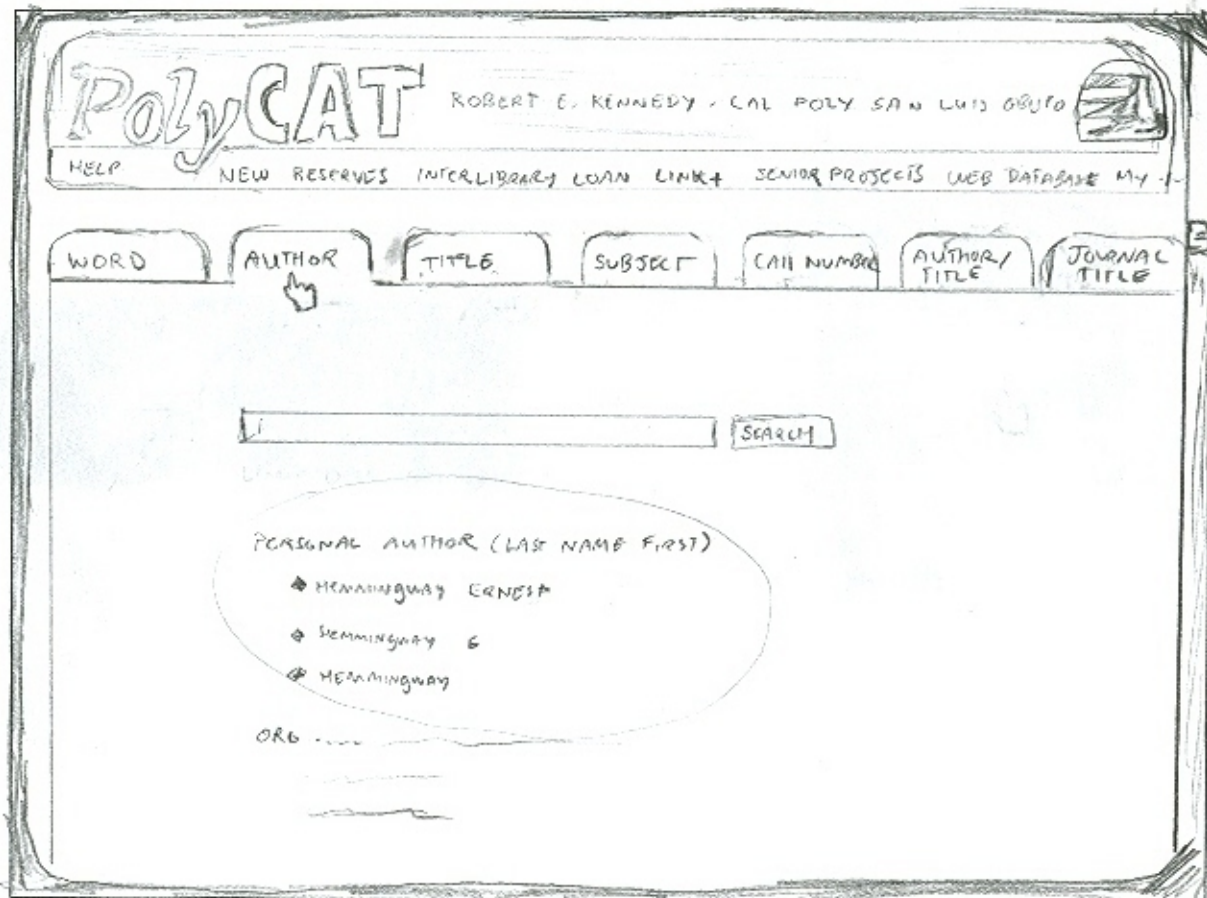 PolyCAT
ROBERT E. KENNEDY. CAL POLY SAN LUIS OBISPO
HELP NEW RESERVES INTERLIBRARY LOAN LINK+ SENIOR PROJECTS WEB DATABASE MY
WORD AUTHOR TITLE SUBJECT CALL NUMBER AUTHOR/ JOURNAL
TITLE TITLE
SEARCH
PERSONAL AUTHOR (LAST NAME FIRST)
HEMMINGWAY ERNEST
HEMMINGWAY
HEMMINGWAY
ORG